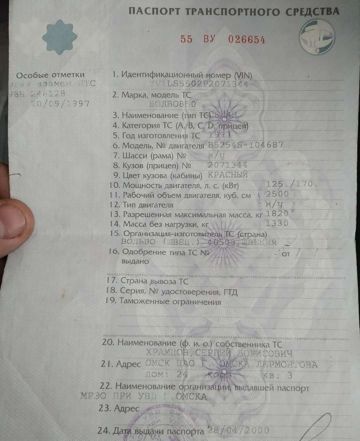 ПАСПОРТ ТРАНСПОРТНОГО СРЕДСТВА
55 ВУ 026654
Особые отметки
взамен ПТС
20/09/1997
1. Идентификационный номер (VIN)
2. Марка, модель ТС
ВОЛЬВО
3. Наименование (тип ТС)
4. Категория ТС (A, B, C, D, прицеп)
5. Год изготовления ТС 1993
6. Модель, № двигателя B5254S-104687
7. Шасси (рама) № Н/У
8. Кузов (прицеп) № 2071344
9. Цвет кузова (кабины) КРАСНЫЙ
10. Мощность двигателя, л. с. (кВт) 125./170.
11. Рабочий объем двигателя, куб. см 2500
12. Тип двигателя Н/У
13. Разрешенная максимальная масса, кг 1820
14. Масса без нагрузки, кг 1330
15. Организация-изготовитель ТС (страна)
ВОЛЬВО
16. Одобрение типа ТС № от
выдано
17. Страна вывоза ТС
18. Серия, № удостоверения, ГТД
19. Таможенные ограничения
20. Наименование (ф. и. о.) собственника ТС
СЕРГЕЙ БОРИСОВИЧ
21. Адрес ОМСК Г. ОМСКА ЛЕРМОНТОВА
кв. 3
22. Наименование организации, выдавшей паспорт
МРЭО ПРИ УВД Г. ОМСКА
23. Адрес
24. Дата выдачи паспорта 28/04/2000